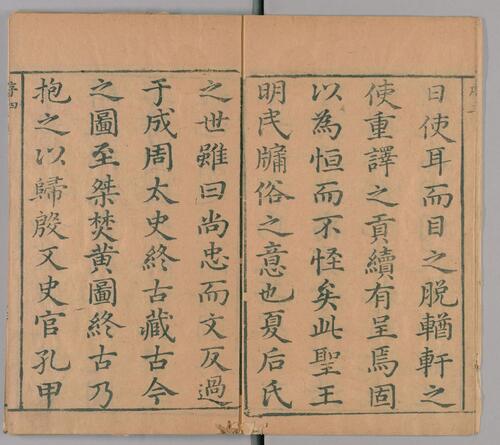 日使耳而目之脫輶軒之
使重譯之貢續有呈焉固
以為恒而不怪矣此聖王
明民牖俗之意也夏后氏
之世雖曰尚忠而文反過
于成周太史終古藏古今
之圖至桀焚黃圖終古乃
抱之以歸殷又史官孔甲
序四